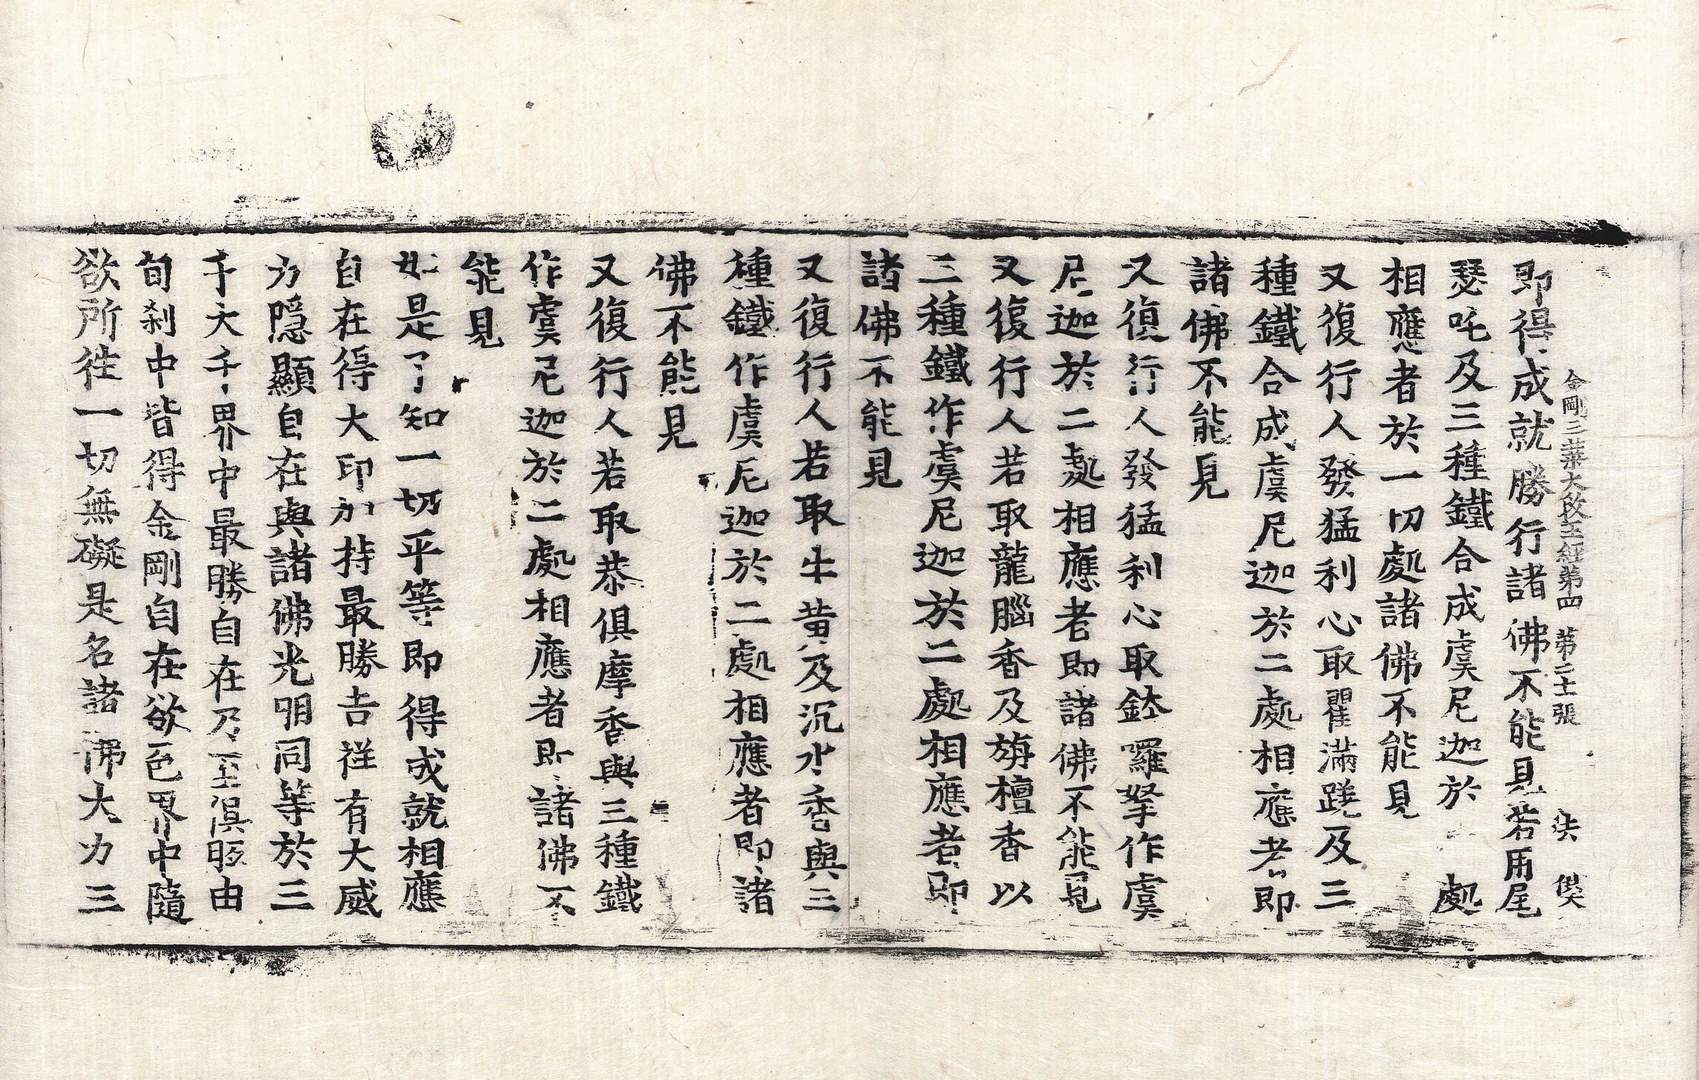 即得成就勝行諸佛不能見若用尾
瑟吒及三種鐵合成虞尼迦於 處
相應者於一切處諸佛不能見
又復行人發猛利心取瞿滿蹉及三
種鐵合成虞尼迦於二處相應者即
諸佛不能見
又復行人發猛利心取鉢囉拏作虞
尼迦於二處相應者即諸佛不能見
又復行人若取龍腦香及旃檀香以
三種鐵作虞尼迦於二處相應者即
諸佛不能見
又復行人若取牛黃及沉水香與三
種鐵作虞尼迦於二處相應者即諸
佛不能見
又復行人若取恭俱摩香與三種鐵
作虞尼迦於二處相應者即諸佛不
能見
如是了知一切平等即得成就相應
自在得大印加持最勝吉祥有大威
力隱顯自在與諸佛光明同等於三
千大千界中最勝自在乃至俱胝由
旬剎中皆得金剛自在欲色界中隨
欲所往一切無礙是名諸佛大力三
金剛三業大教王經第四 第二十張